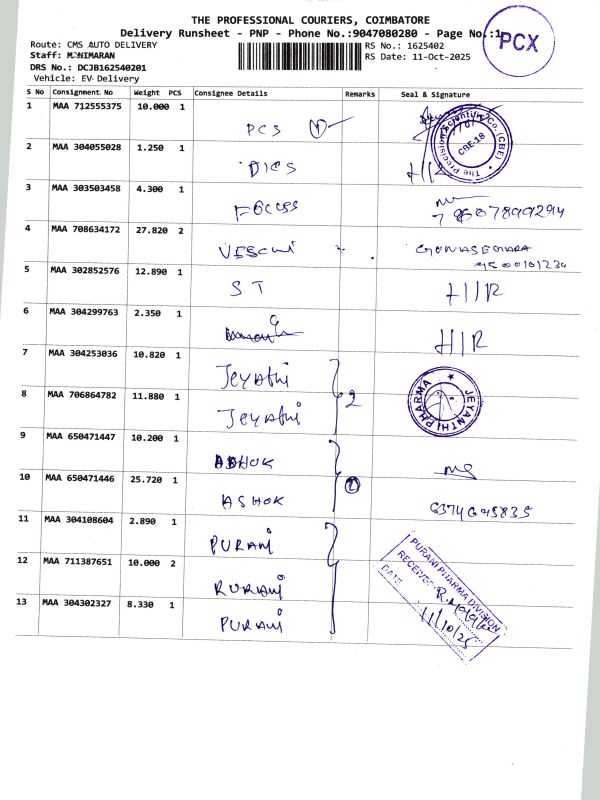 THE PROFESSIONAL COURIERS, COIMBATORE
Delivery Runsheet - PNP - Phone No.:9047080280 - Page No.:1
PCX
Route: CMS AUTO DELIVERY
RS No.: 1625402
Staff: MANIMARAN
RS Date: 11-Oct-2025
DRS No.: DCJB162540201
Vehicle: EV Delivery
S No Consignment No Weight PCS Consignee Details Remarks Seal & Signature
1 MAA 712555375 10.000 1 PCS
The Precision Scientific Co. (CBE) CBE-18
2 MAA 304055028 1.250 1 DICS
3 MAA 303503458 4.300 1
4 MAA 708634172 27.820 2
5 MAA 302852576 12.890 1 ST H/R
6 MAA 304299763 2.350 1 H/R
7 MAA 304253036 10.820 1 Jeyathi
8 MAA 706864782 11.880 1 Jeyathi 2
JEYANTHI PHARMA
9 MAA 650471447 10.200 1 ASHOK
10 MAA 650471446 25.720 1 ASHOK 2 6374695835
11 MAA 304108604 2.890 1 PURANI
12 MAA 711387651 10.000 2 PURANI
13 MAA 304302327 8.330 1 PURANI
PURANI PHARMA DIVISION
RECEIVED
DATE 11/10/25